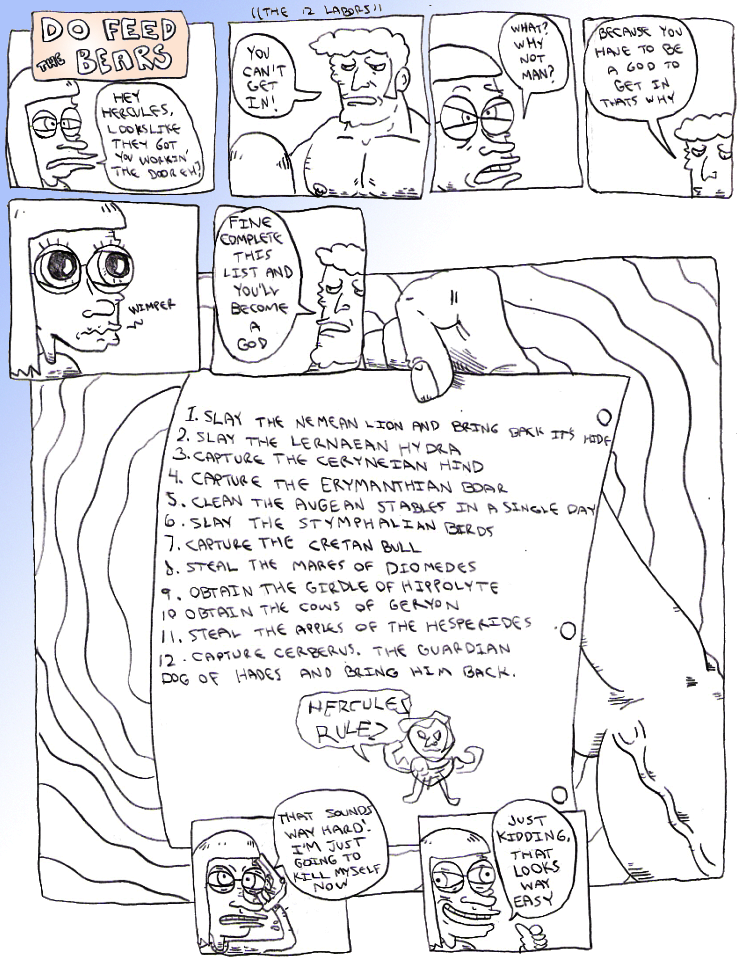 ((THE 12 LABORS))
DO FEED
THE BEARS
HEY
HERCULES,
LOOKSLIKE
THEY GOT
YOU WORKIN'
THE DOOR EH?
YOU
CAN'T
GET
IN!
WHAT?
WHY
NOT
MAN?
BECAUSE YOU
HAVE TO BE
A GOD TO
GET IN
THATS WHY
WIMPER
FINE
COMPLETE
THIS
LIST AND
YOU'LL
BECOME
A
GOD
1. SLAY THE NEMEAN LION AND BRING BACK IT'S HIDE
2. SLAY THE LERNAEAN HYDRA
3. CAPTURE THE CERYNEIAN HIND
4. CAPTURE THE ERYMANTHIAN BOAR
5. CLEAN THE AUGEAN STABLES IN A SINGLE DAY
6. SLAY THE STYMPHALIAN BIRDS
7. CAPTURE THE CRETAN BULL
8. STEAL THE MARES OF DIOMEDES
9. OBTAIN THE GIRDLE OF HIPPOLYTE
10 OBTAIN THE COWS OF GERYON
11. STEAL THE APPLES OF THE HESPERIDES
12. CAPTURE CERBERUS. THE GUARDIAN
DOG OF HADES AND BRING HIM BACK.
HERCULES
RULES
THAT SOUNDS
WAY HARD!
I'M JUST
GOING TO
KILL MYSELF
NOW
JUST
KIDDING,
THAT
LOOKS
WAY
EASY